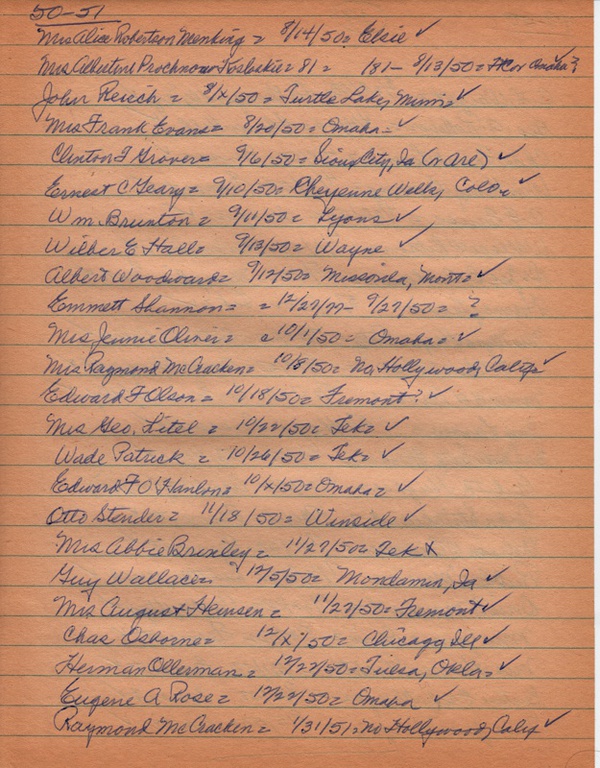 50-51
Mrs Alice Robertson Menking = 8/14/50 = Elsie ✓
Mrs Albertine Prochnow = 81 = /81 - 8/13/50 = Omaha?
John Reich = 8/x/50 = Turtle Lake, Minn ✓
Mrs Frank Evans = 8/20/50 = Omaha = ✓
Clinton F Grover = 9/6/50 = Sioux City, Ia (r are) ✓
Ernest C Geary = 9/10/50 = Cheyenne Wells, Colo = ✓
Wm. Brunton = 9/11/50 = Lyons ✓
Wilber E Hall = 9/13/50 = Wayne ✓
Albert Woodward = 9/12/50 = Missoula, Mont = ✓
Emmett Shannon = = 12/27/77 - 9/27/50 = ?
Mrs Jennie Oliver = = 10/1/50 = Omaha = ✓
Mrs Raymond McCracken = 10/8/50 = No, Hollywood, Calif = ✓
Edward F Olson = 10/18/50 = Fremont? ✓
Mrs Geo. Litel = 10/22/50 = Tek = ✓
Wade Patrick = 10/26/50 = Tek = ✓
Edward F O'Hanlon = 10/x/50 = Omaha = ✓
Otto Stender = 11/18/50 = Winside ✓
Mrs Abbie Brinley = 11/27/50 = Tek x
Guy Wallace = 12/5/50 = Mondamin, Ia ✓
Mrs August Heinsen = 11/27/50 = Fremont ✓
Chas Osborne = 12/x/50 = Chicago, Ill ✓
Herman Ollerman = 12/22/50 = Tulsa, Okla = ✓
Eugene A Rose = 12/22/50 = Omaha ✓
Raymond McCracken = 1/31/51 = No Hollywood, Calif ✓